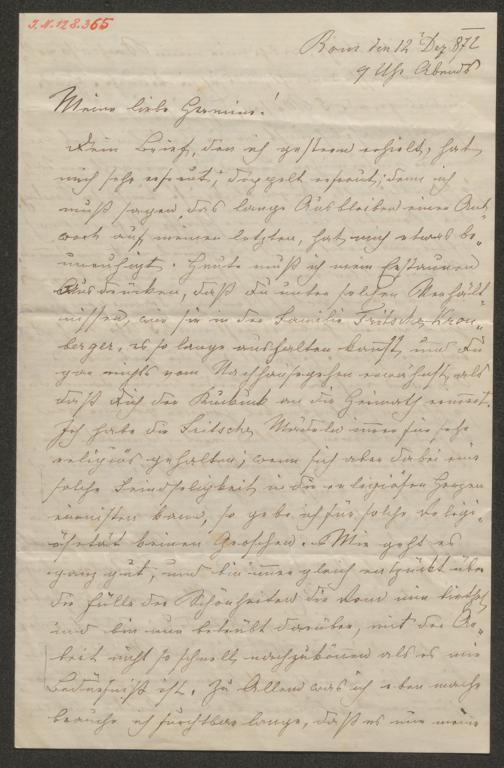 J.N. 128.365
Rom den 12' Dez. 872
9 Uhr Abends
Meine liebe Hermine!
Dein Brief, den ich gestern erhielt, hat
mich sehr erfreut, doppelt erfreut; denn ich
muß sagen das lange Ausbleiben einer Ant„
wort auf meinen letzten, hat mich etwas be„
unruhigt. Heute muß ich mein Erstaunen
ausdrücken, daß Du unter solchen Verhält„
nissen, wie sie in der Familie Fritsche Kron„
berger, es so lange aushalten kannst, und Du
gar nichts vom Nachhausegehen erwähnst, als
daß Dich der Kukuk an die Heimath erinnert.
Ich habe die Fritsche Mädeln immer für sehr
religiös gehalten; wenn sich aber dabei eine
solche Feindseligkeit in die religiösen Herzen
einnisten kann, so gebe ich für solche Religi„
ösität keinen Groschen. Mir geht es
ganz gut, und bin immer gleich entzückt über
die Fülle der Schönheiten die Rom mir biethet
und bin nur betrübt darüber, mit der Ar„
beit nicht so schnell nachzukönnen als es mir
Bedürfniß ist. Zu Allem was ich eben mache
brauche ich furchtbar lange, daß es mir meine